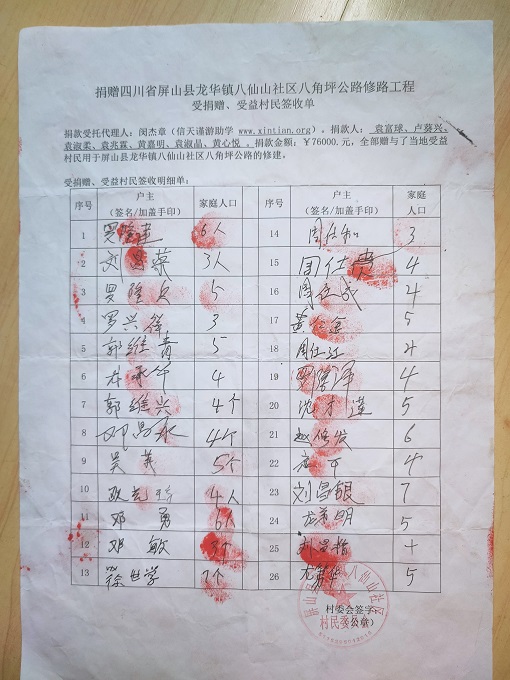 捐赠四川省屏山县龙华镇八仙山社区八角坪公路修路工程
受捐赠、受益村民签收单
捐款受托代理人：闵杰章（信天谨游助学 www.xintian.org）。捐款人：袁富球、卢葵兴、
袁淑柔、袁兆霖、黄嘉明、袁淑晶、黄心悦。捐款金额：￥76000元，全部赠与了当地受益
村民用于屏山县龙华镇八仙山社区八角坪公路的修建。
受捐赠、受益村民签收明细单：
序号 户主（签名/加盖手印） 家庭人口
1 6人
2 3人
3 5
4 罗兴 3
5 郭维青 5
6 4
7 郭维兴 4个
8 邓昌永 4个
9 吴 5个
10 4人
11 邓勇 6人
12 邓敏 3个
13 徐世学 7个
序号 户主（签名/加盖手印） 家庭人口
14 周仕 3
15 周仕贵 4
16 周 成 4
17 黄 金 5
18 周仕江 4
19 4
20 沈才莲 5
21 赵 发 6
22 4
23 刘昌银 7
24 龙 明 5
25 刘昌
26 龙 5
村委会签字
（公章）
屏山县 八仙山社区
村民委